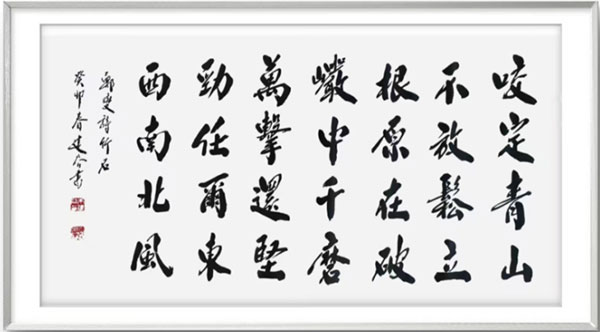 咬定青山
不放鬆立
根原在破
巖中千磨
萬擊還堅
勁任爾東
西南北風
鄭燮詩竹石
癸卯春建書